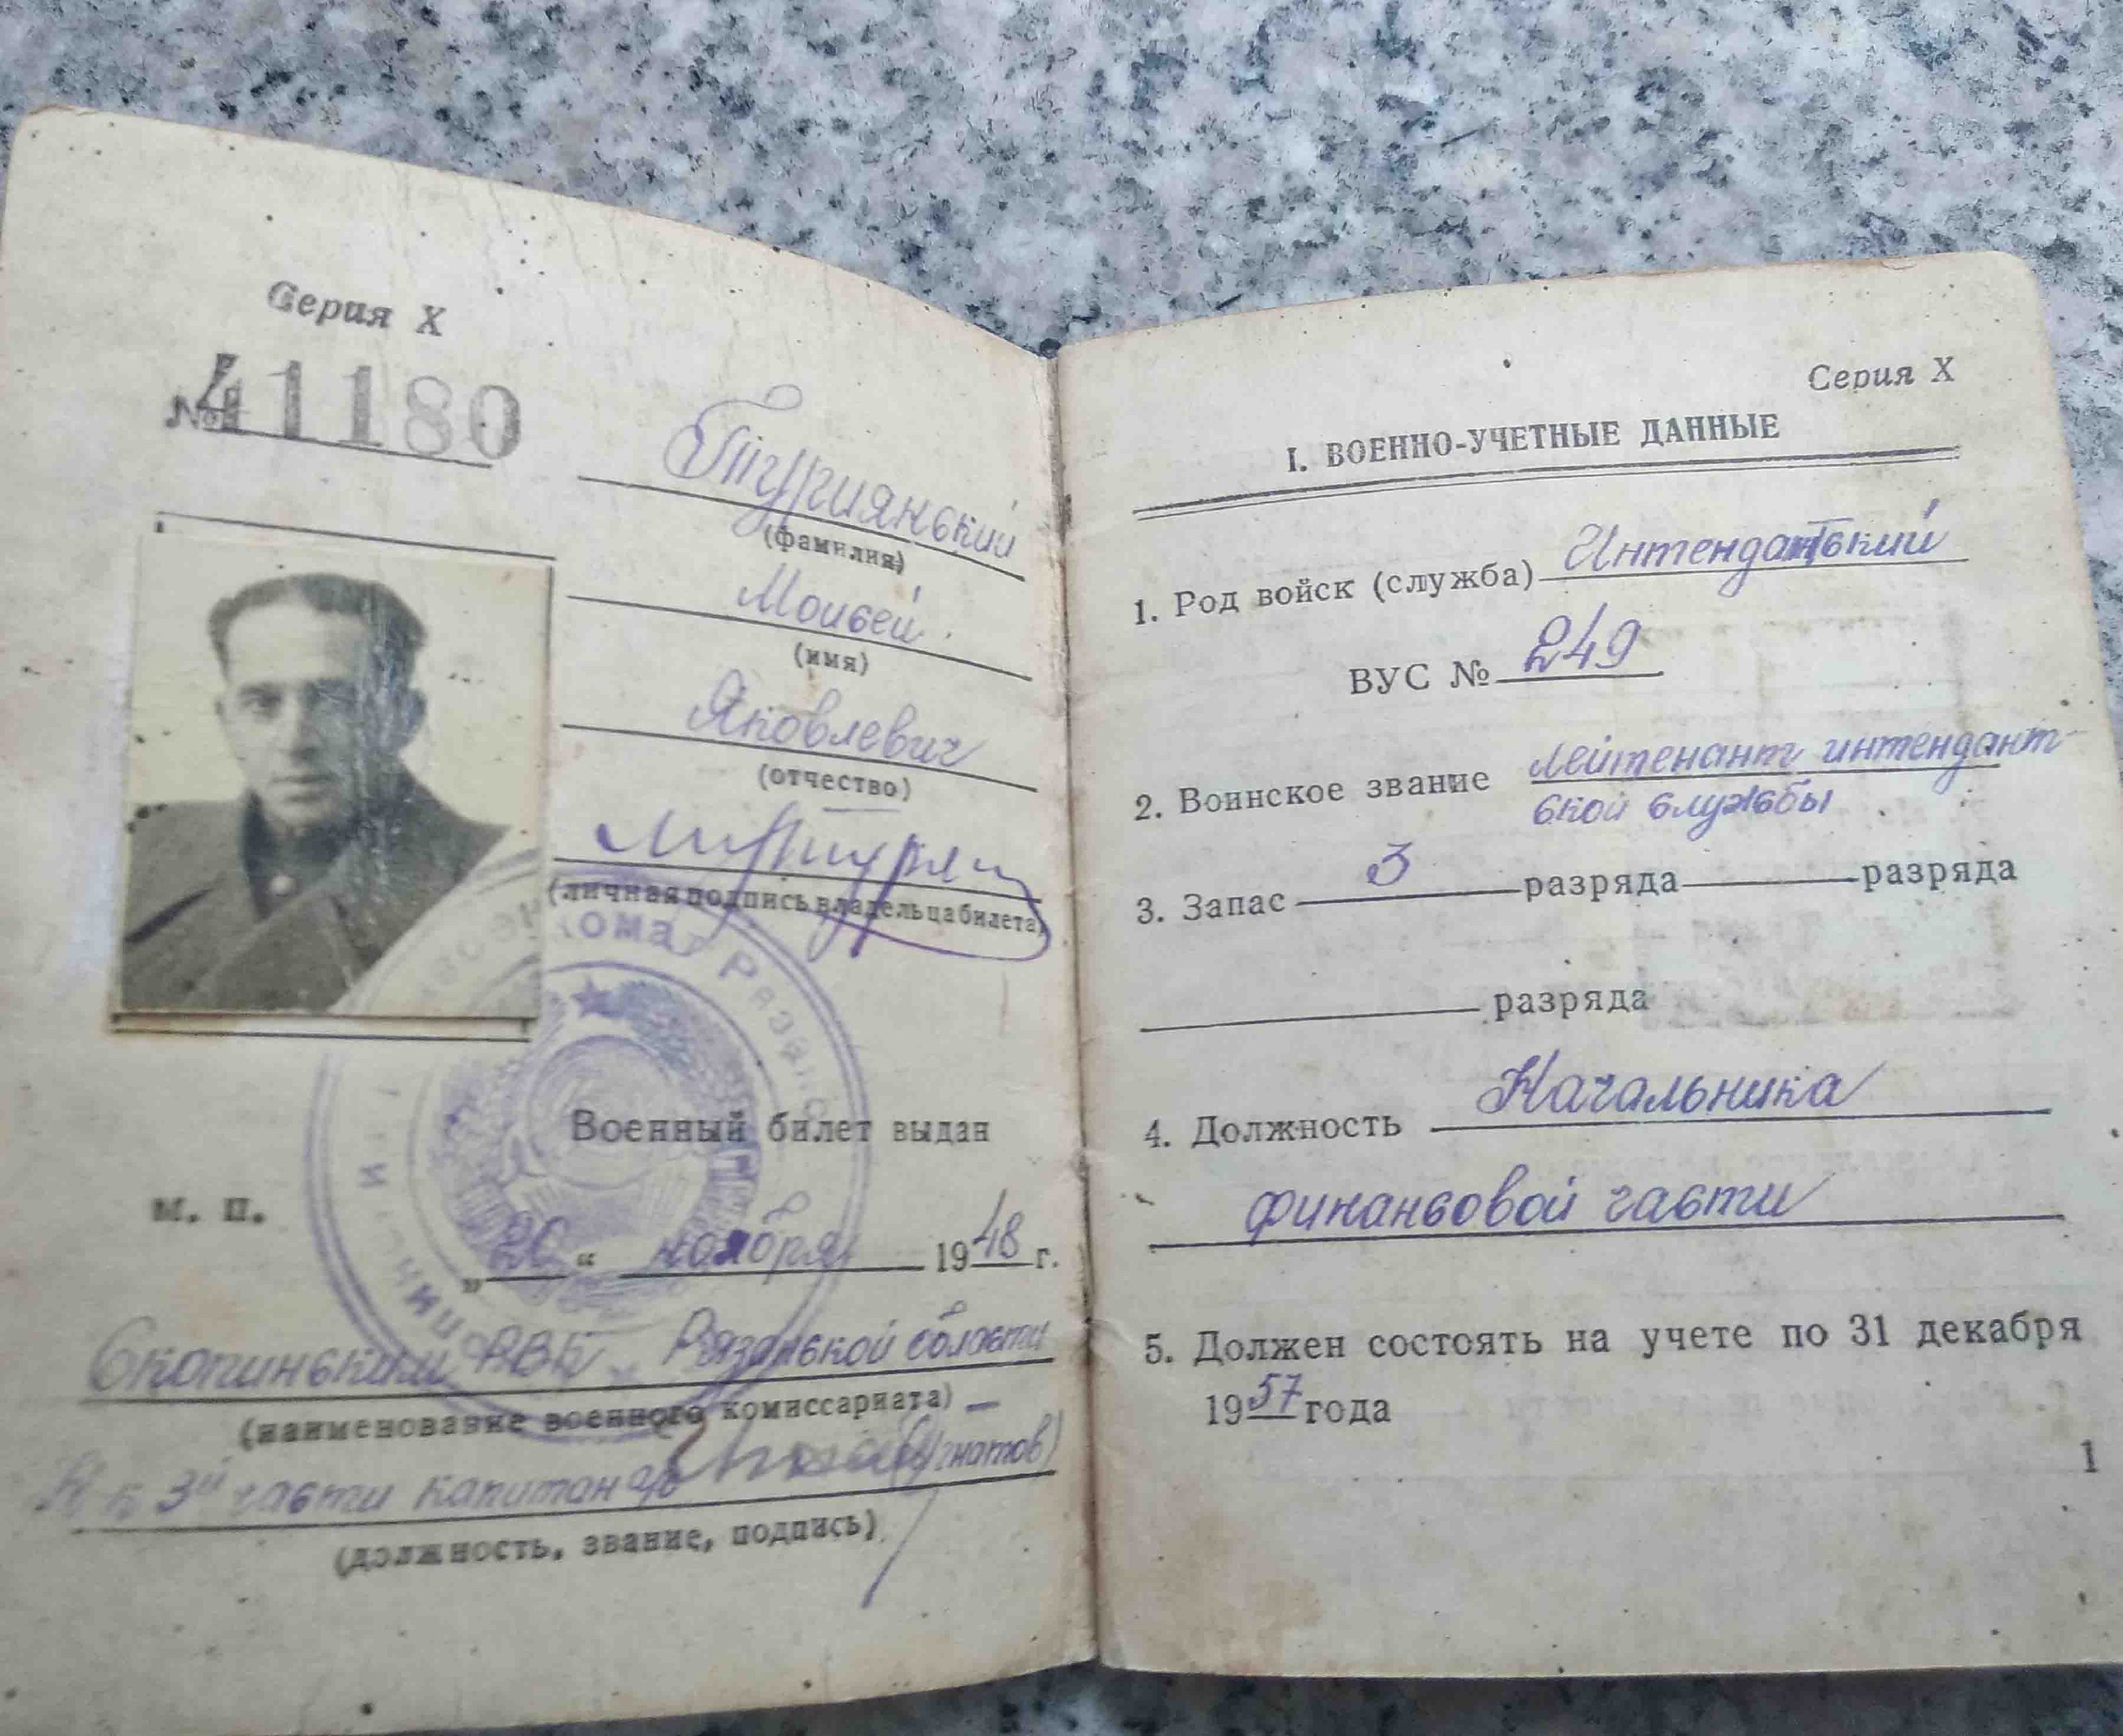 Серия X
№ 41180
Тургиянский
(фамилия)
Моисей
(имя)
Яковлевич
(отчество)
(личная подпись владельца билета)
Военный билет выдан
М. П.
„20“ ноября 1948 г.
Скопинским РВК Рязанской области
(наименование военного комиссариата)
3й части капитан а/с (Игнатов)
(должность, звание, подпись)
Серия X
I. ВОЕННО-УЧЕТНЫЕ ДАННЫЕ
1. Род войск (служба) Интендантский
ВУС № 249
2. Воинское звание лейтенант интендант-
ской службы
3. Запас 3 разряда разряда
разряда
4. Должность Начальника
финансовой части
5. Должен состоять на учете по 31 декабря
1957 года
1